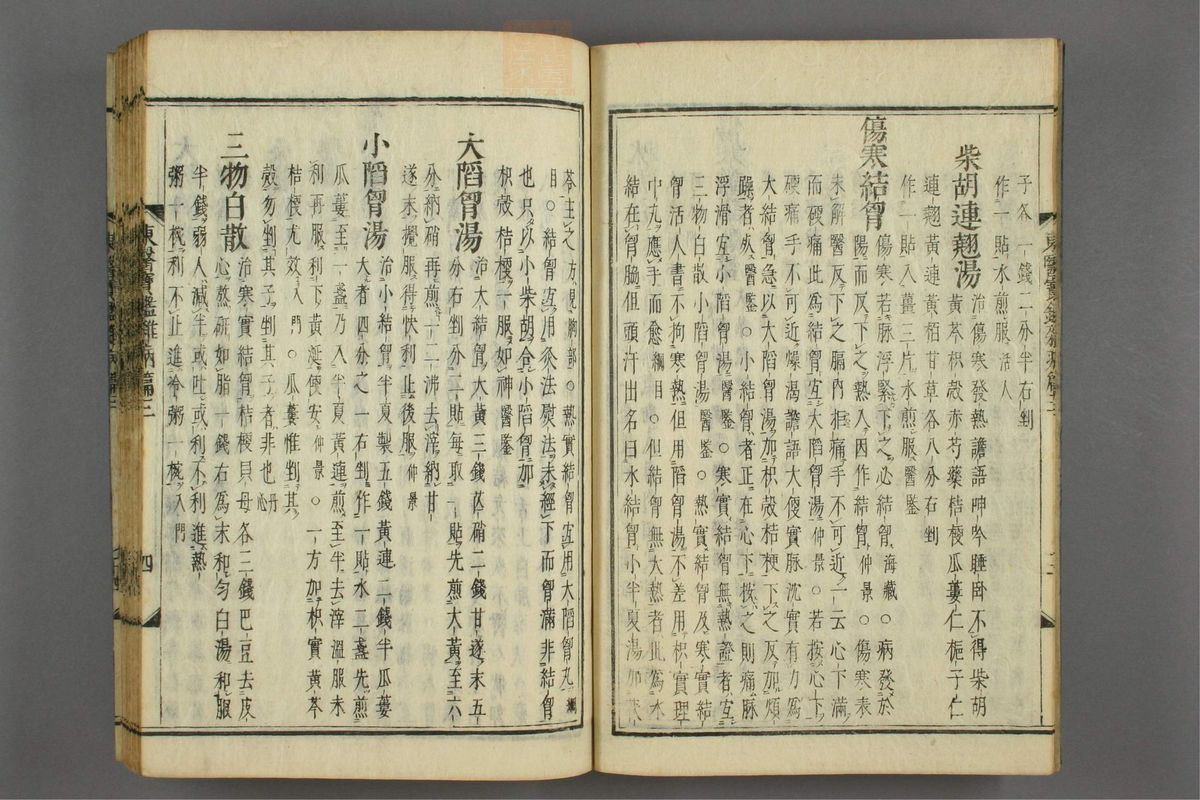 子各一錢二分半右剉
作一貼水煎服活人
柴胡連翹湯 治傷寒發熱譫語呻吟睡臥不得柴胡
黃芩枳殼赤芍藥桔梗瓜蔞仁梔子仁
連翹黃連黃栢甘草各八分右剉
作一貼入薑三片水煎服醫鑒
傷寒結胷 傷寒若脉浮緊下之必結胷海藏○病發於
陽而反下之熱入因作結胷仲景○傷寒表
未解醫反下之膈內拒痛手不可近一云心下滿
而硬痛此爲結胷宜大陷胷湯仲景○若按心下
硬痛手不可近燥渴譫語大便實脉沈實有力爲
大結胷急以大陷胷湯加枳殼桔梗下之反加煩
躁者死醫鑒○小結胷者正在心下按之則痛脉
浮滑宜小陷胷湯醫鑒○寒實結胷無熱證者宜
三物白散小陷胷湯醫鑒○熱實結胷及寒實結
胷活人書不拘寒熱但用陷胷湯不差用枳實理
中丸應手而愈綱目○但結胷無大熱者此爲水
結在胷脇但頭汗出名曰水結胷小半夏湯加茯
苓主之方見胸部○熱實結胷宜用大陷胷丸綱
目○結胷宜用灸法熨法未經下而胷滿非結胷
也只以小柴胡合小陷胷加
枳殼桔梗服如神醫鑒
大陷胷湯 治大結胷大黃三錢芒硝二錢甘遂末五
分右剉分二貼每取一貼先煎大黃至六
分納硝再煎一二沸去滓納甘
遂末攪服得快利止後服仲景
小陷胷湯 治小結胷半夏製五錢黃連二錢半瓜蔞
大者四分之一右剉作一貼水二盞先煎
瓜蔞至一盞乃入半夏黃連煎至半去滓溫服未
利再服利下黃涎便安仲景○一方加枳實黃芩
桔梗尤效入門○瓜蔞惟剉其
殼勿剉其子剉其子者非也丹心
三物白散 治寒實結胷桔梗貝母各三錢巴豆去皮
心熬研如脂一錢右爲末和匀白湯和服
半錢弱人減半或吐或利不利進熱
粥一椀利不止進冷粥一椀入門
東醫寶鑑雜病篇二 四